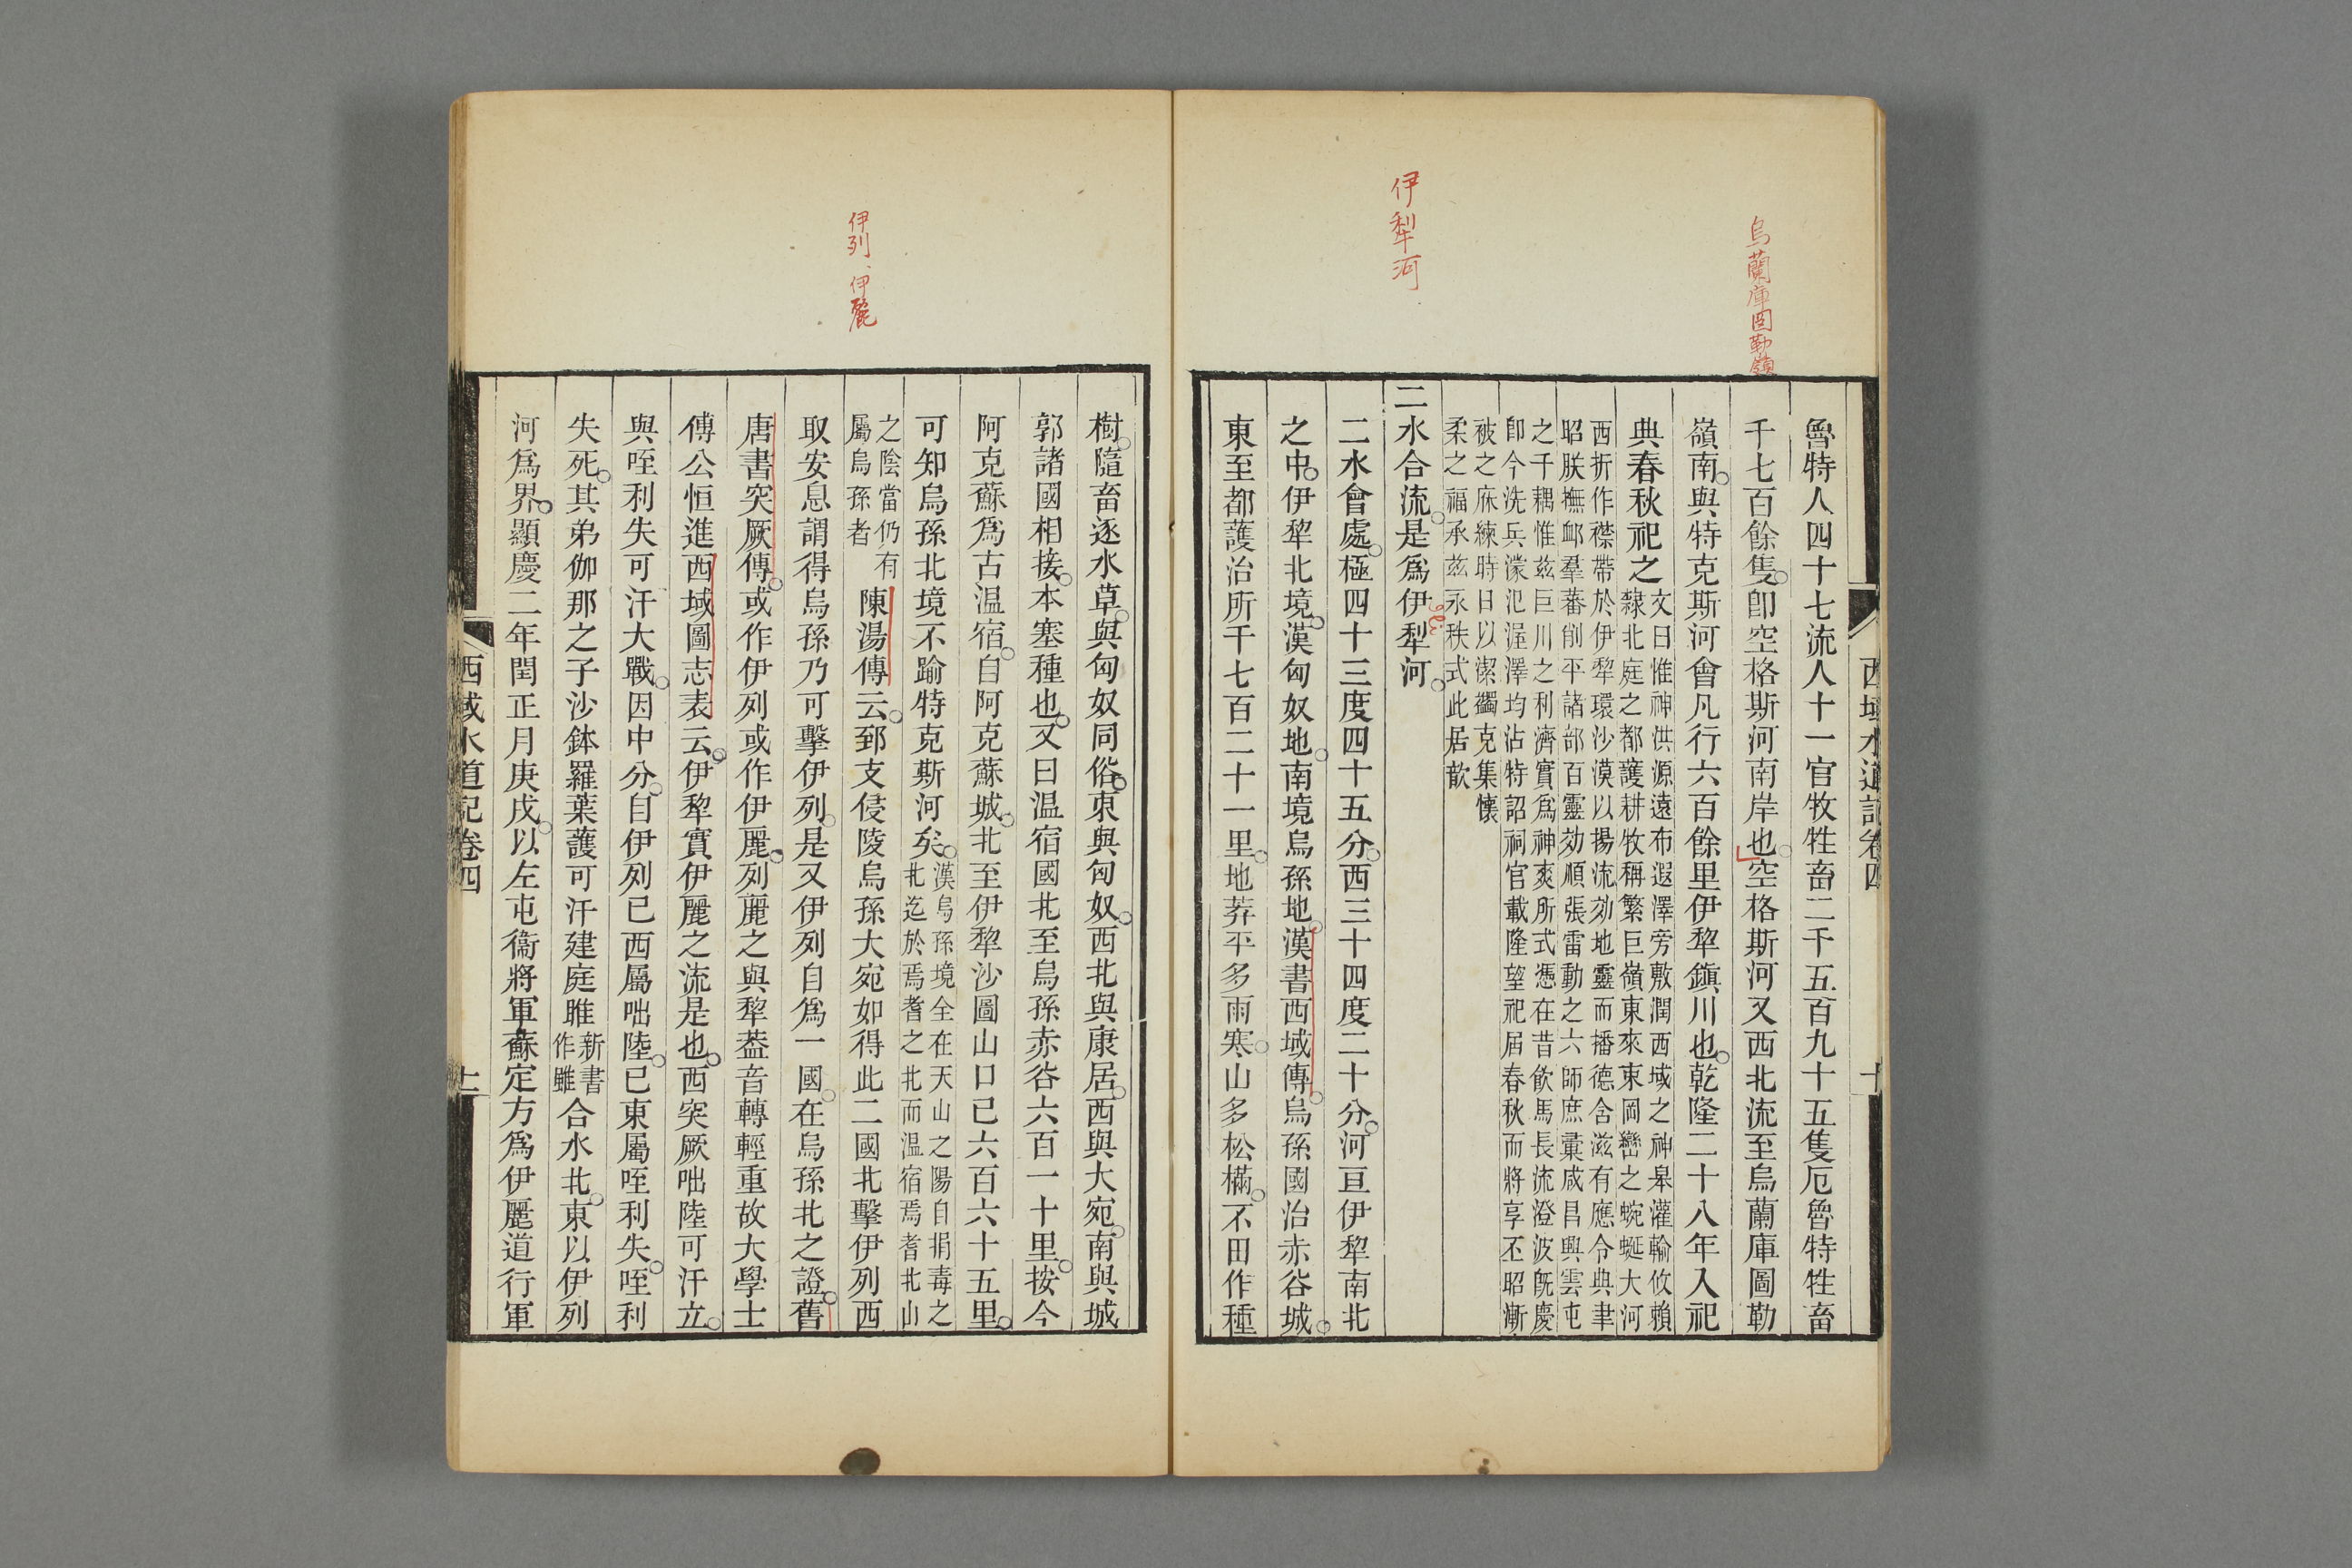 烏蘭庫圖勒嶺
伊犁河
西域水道記卷四
十
魯特人四十七流人十一官牧牲畜二千五百九十五隻厄魯特牲畜
千七百餘隻卽空格斯河南岸也空格斯河又西北流至烏蘭庫圖勒
嶺南與特克斯河會凡行六百餘里伊犂鎭川也乾隆二十八年入祀
典春秋祀之
文曰惟神洪源遠布遐澤旁敷潤西域之神皋灌輸攸賴
隸北庭之都護耕牧稱繁巨嶺東來東岡巒之蜿蜒大河
西折作襟帶於伊犂環沙漠以揚流効地靈而播德含滋有應令典聿
昭朕撫邮羣蕃削平諸部百靈効順張雷動之六師庶彙咸昌興雲屯
之千耦惟茲巨川之利濟實爲神爽所式憑在昔飲馬長流澄波旣慶
卽今洗兵濛汜渥澤均沾特詔祠官載隆望祀屆春秋而將享丕昭漸
被之庥練時日以潔蠲克集懷
柔之福承茲永秩式此居歆
二水合流是爲伊犁河
二水會處極四十三度四十五分西三十四度二十分河亘伊犂南北
之中伊犂北境漢匈奴地南境烏孫地漢書西域傳烏孫國治赤谷城
東至都護治所千七百二十一里地莽平多雨寒山多松樠不田作種
樹隨畜逐水草與匈奴同俗東與匈奴西北與康居西與大宛南與城
郭諸國相接本塞種也又曰温宿國北至烏孫赤谷六百一十里按今
阿克蘇爲古温宿自阿克蘇城北至伊犂沙圖山口已六百六十五里
可知烏孫北境不踰特克斯河矣
漢烏孫境全在天山之陽自捐毒之
北迄於焉耆之北而温宿焉耆北山
之陰當仍有
屬烏孫者
陳湯傳云郅支侵陵烏孫大宛如得此二國北擊伊列西
取安息謂得烏孫乃可擊伊列是又伊列自爲一國在烏孫北之證舊
唐書突厥傳或作伊列或作伊麗列麗之與犂葢音轉輕重故大學士
傅公恒進西域圖志表云伊犂實伊麗之流是也西突厥咄陸可汗立
與咥利失可汗大戰因中分自伊列已西屬咄陸已東屬咥利失咥利
失死其弟伽那之子沙鉢羅葉護可汗建庭雎
新書
作雖
合水北東以伊列
河爲界顯慶二年閏正月庚戌以左屯衞將軍蘇定方爲伊麗道行軍
伊列、伊麗
西域水道記卷四